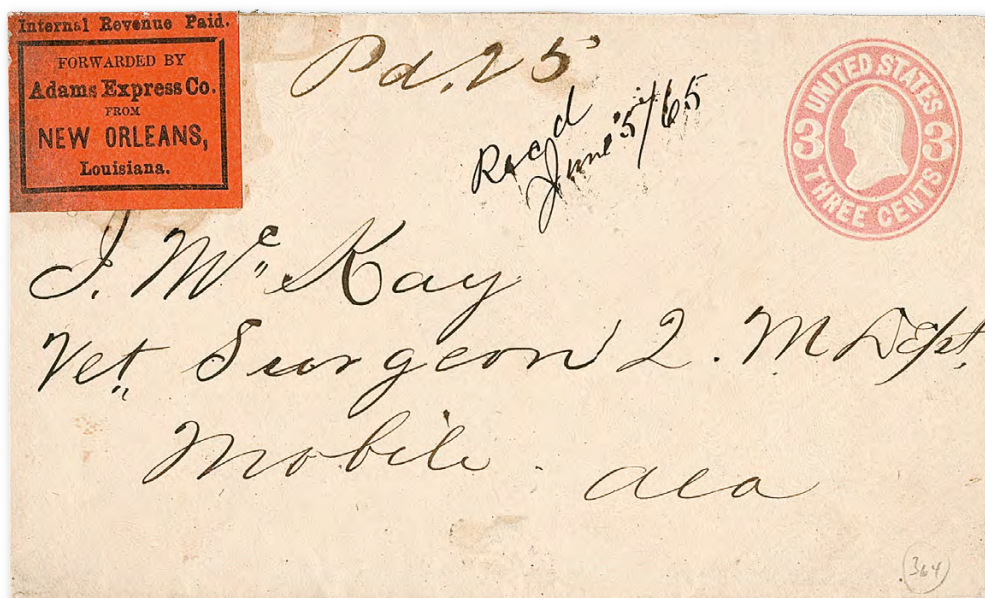 Internal Revenue Paid.
FORWARDED BY
Adams Express Co.
FROM
NEW ORLEANS,
Louisiana.
Pd. 25
Recd
June 5/65
UNITED STATES
3 3
THREE CENTS
J. Mc Kay
Vet. Surgeon Q. M Dept.
Mobile. Ala
364